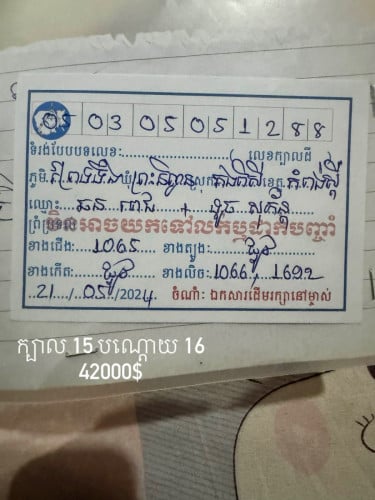 05 03 05 05 1288
ទំរង់បែបបទលេខ: ( លេខក្បាលដី
ភូមិ. ព្រះនិព្វាន ស្រុក កងពិសី ខេត្ត កំពង់ស្ពឺ
ឈ្មោះ: ឆន + ទូច សុភ័ក្ត្រ
មិនអាចយកទៅលក់ឬដាក់បញ្ចាំ
ខាងជើង: 1065 ខាងត្បូង: ផ្លូវ
ខាងកើត: ផ្លូវ ខាងលិច: 1066, 1692
21/05/2024. ចំណាំ: ឯកសារដើមរក្សានៅម្ចាស់
ក្បាល 15 បណ្តោយ 16
42000$